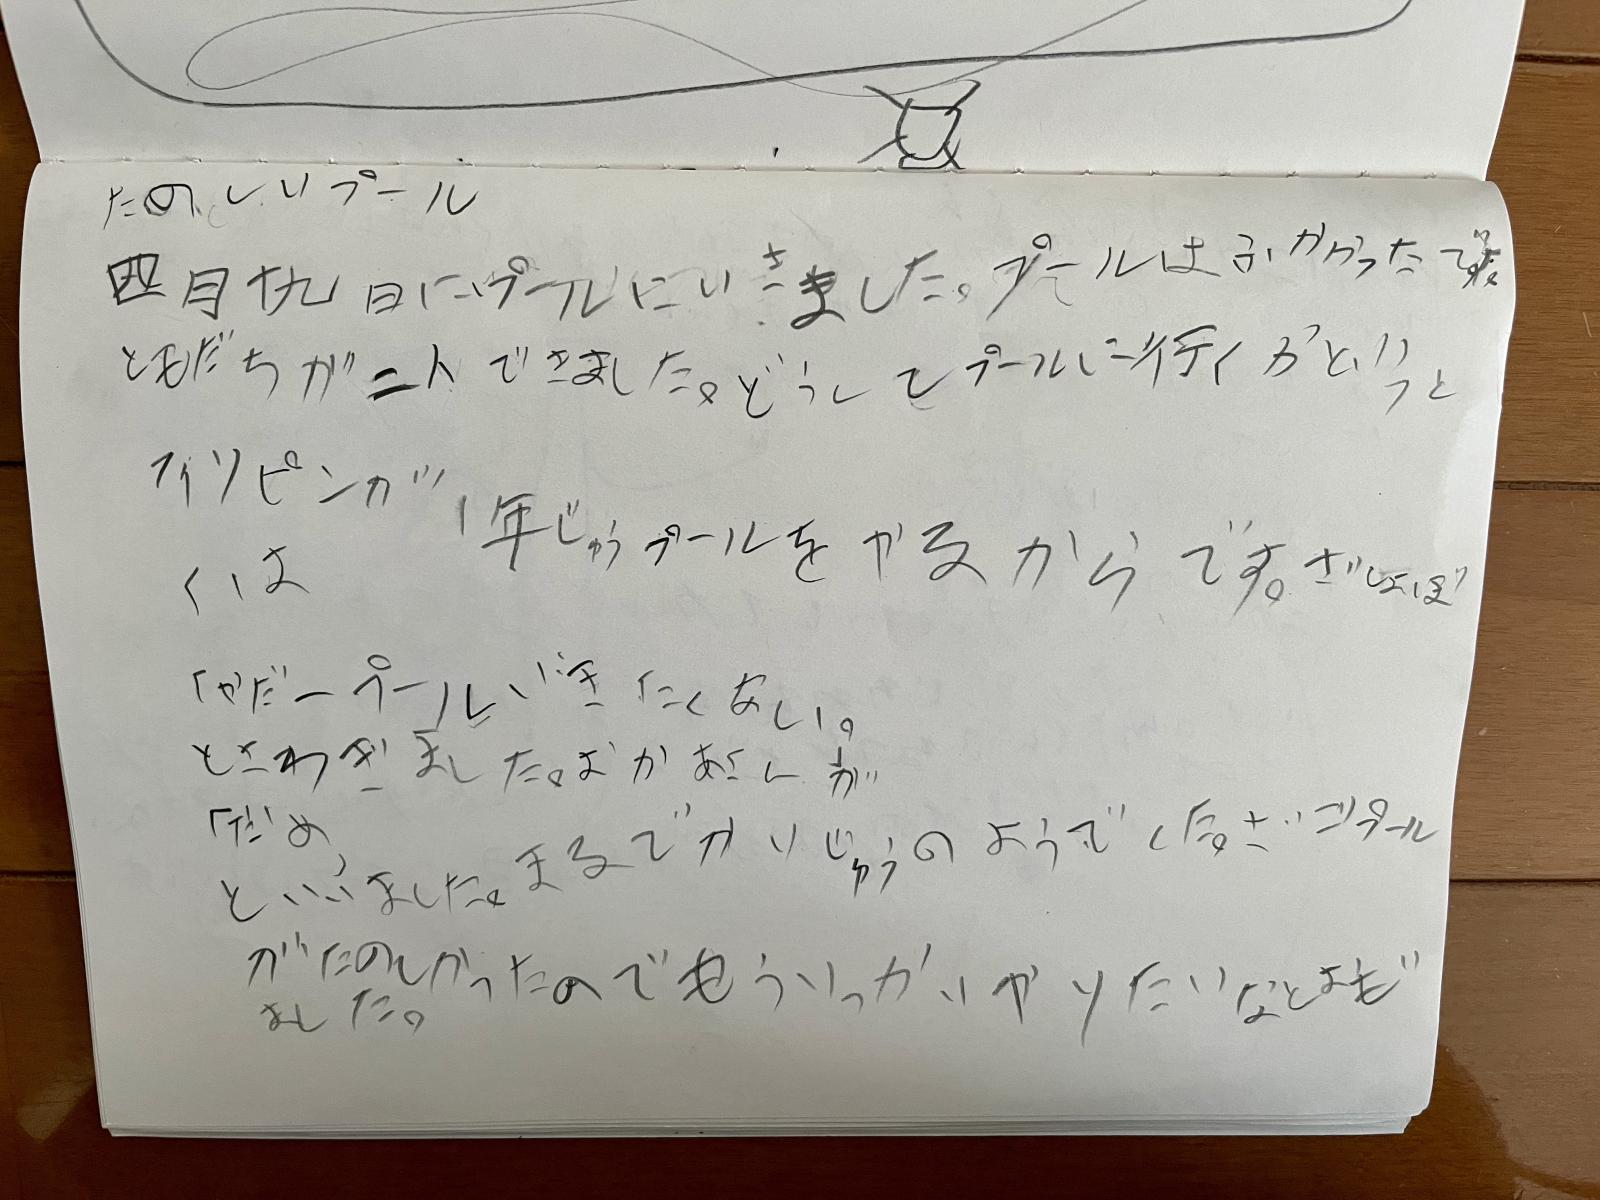 たのしいプール
四月十九日にプールにいきました。プールはふかかったです。
ともだちが二人できました。どうしてプールに行くかというと
フィリピンが1年じゅうプールをやるからです。さいしょぼ
くは
「やだープールいきたくない。
とさわぎました。おかあさんが
「だめ、
といいました。まるでかいじゅうのようでした。さいごプール
がたのしかったのでもういっかいやりたいなとおも
ました。